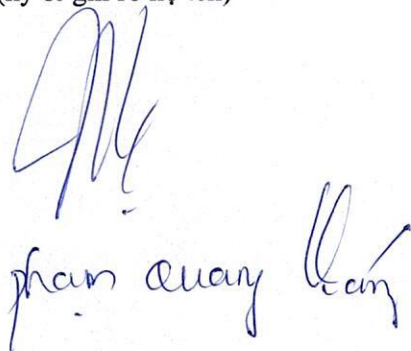 (ký & ghi rõ họ tên)
phạm Quang